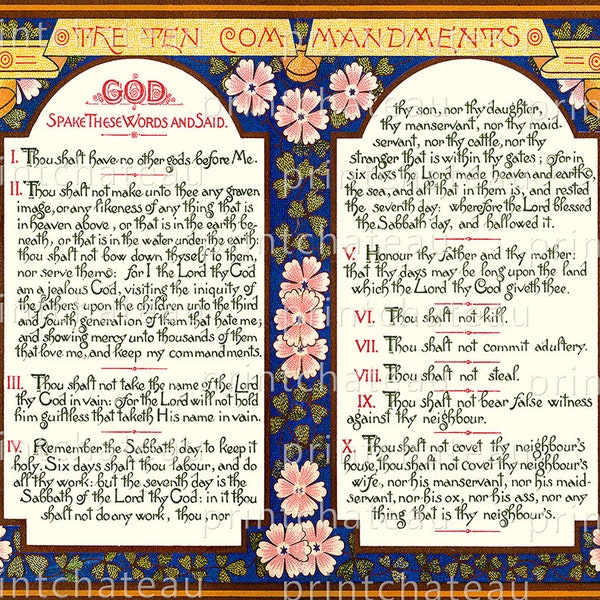 THE TEN COMMANDMENTS
GOD
SPAKE THESE WORDS AND SAID.
I. Thou shalt have no other gods before Me.
II. Thou shalt not make unto thee any graven
image, or any likeness of any thing that is
in heaven above, or that is in the earth be-
neath, or that is in the water under the earth
thou shalt not bow down thyself to them,
nor serve them: for I the Lord thy God
am a jealous God, visiting the iniquity of
the fathers upon the children unto the third
and fourth generation of them that hate me;
and showing mercy unto thousands of them
that love me, and keep my commandments.
III. Thou shalt not take the name of the Lord
thy God in vain: for the Lord will not hold
him guiltless that taketh His name in vain.
IV. Remember the Sabbath day to keep it
holy. Six days shalt thou labour, and do
all thy work: but the seventh day is the
Sabbath of the Lord thy God: in it thou
shalt not do any work, thou, nor
thy son, nor thy daughter,
thy manservant, nor thy maid-
servant, nor thy cattle, nor thy
stranger that is within thy gates; for in
six days the Lord made heaven and earth,
the sea, and all that in them is, and rested
the seventh day: wherefore the Lord blessed
the Sabbath day, and hallowed it.
V. Honour thy father and thy mother:
that thy days may be long upon the land
which the Lord thy God giveth thee.
VI. Thou shalt not kill.
VII. Thou shalt not commit adultery.
VIII. Thou shalt not steal.
IX. Thou shalt not bear false witness
against thy neighbour.
X. Thou shalt not covet thy neighbour's
house, thou shalt not covet thy neighbour's
wife, nor his manservant, nor his maid-
servant, nor his ox, nor his ass, nor any
thing that is thy neighbour's.
printchateau